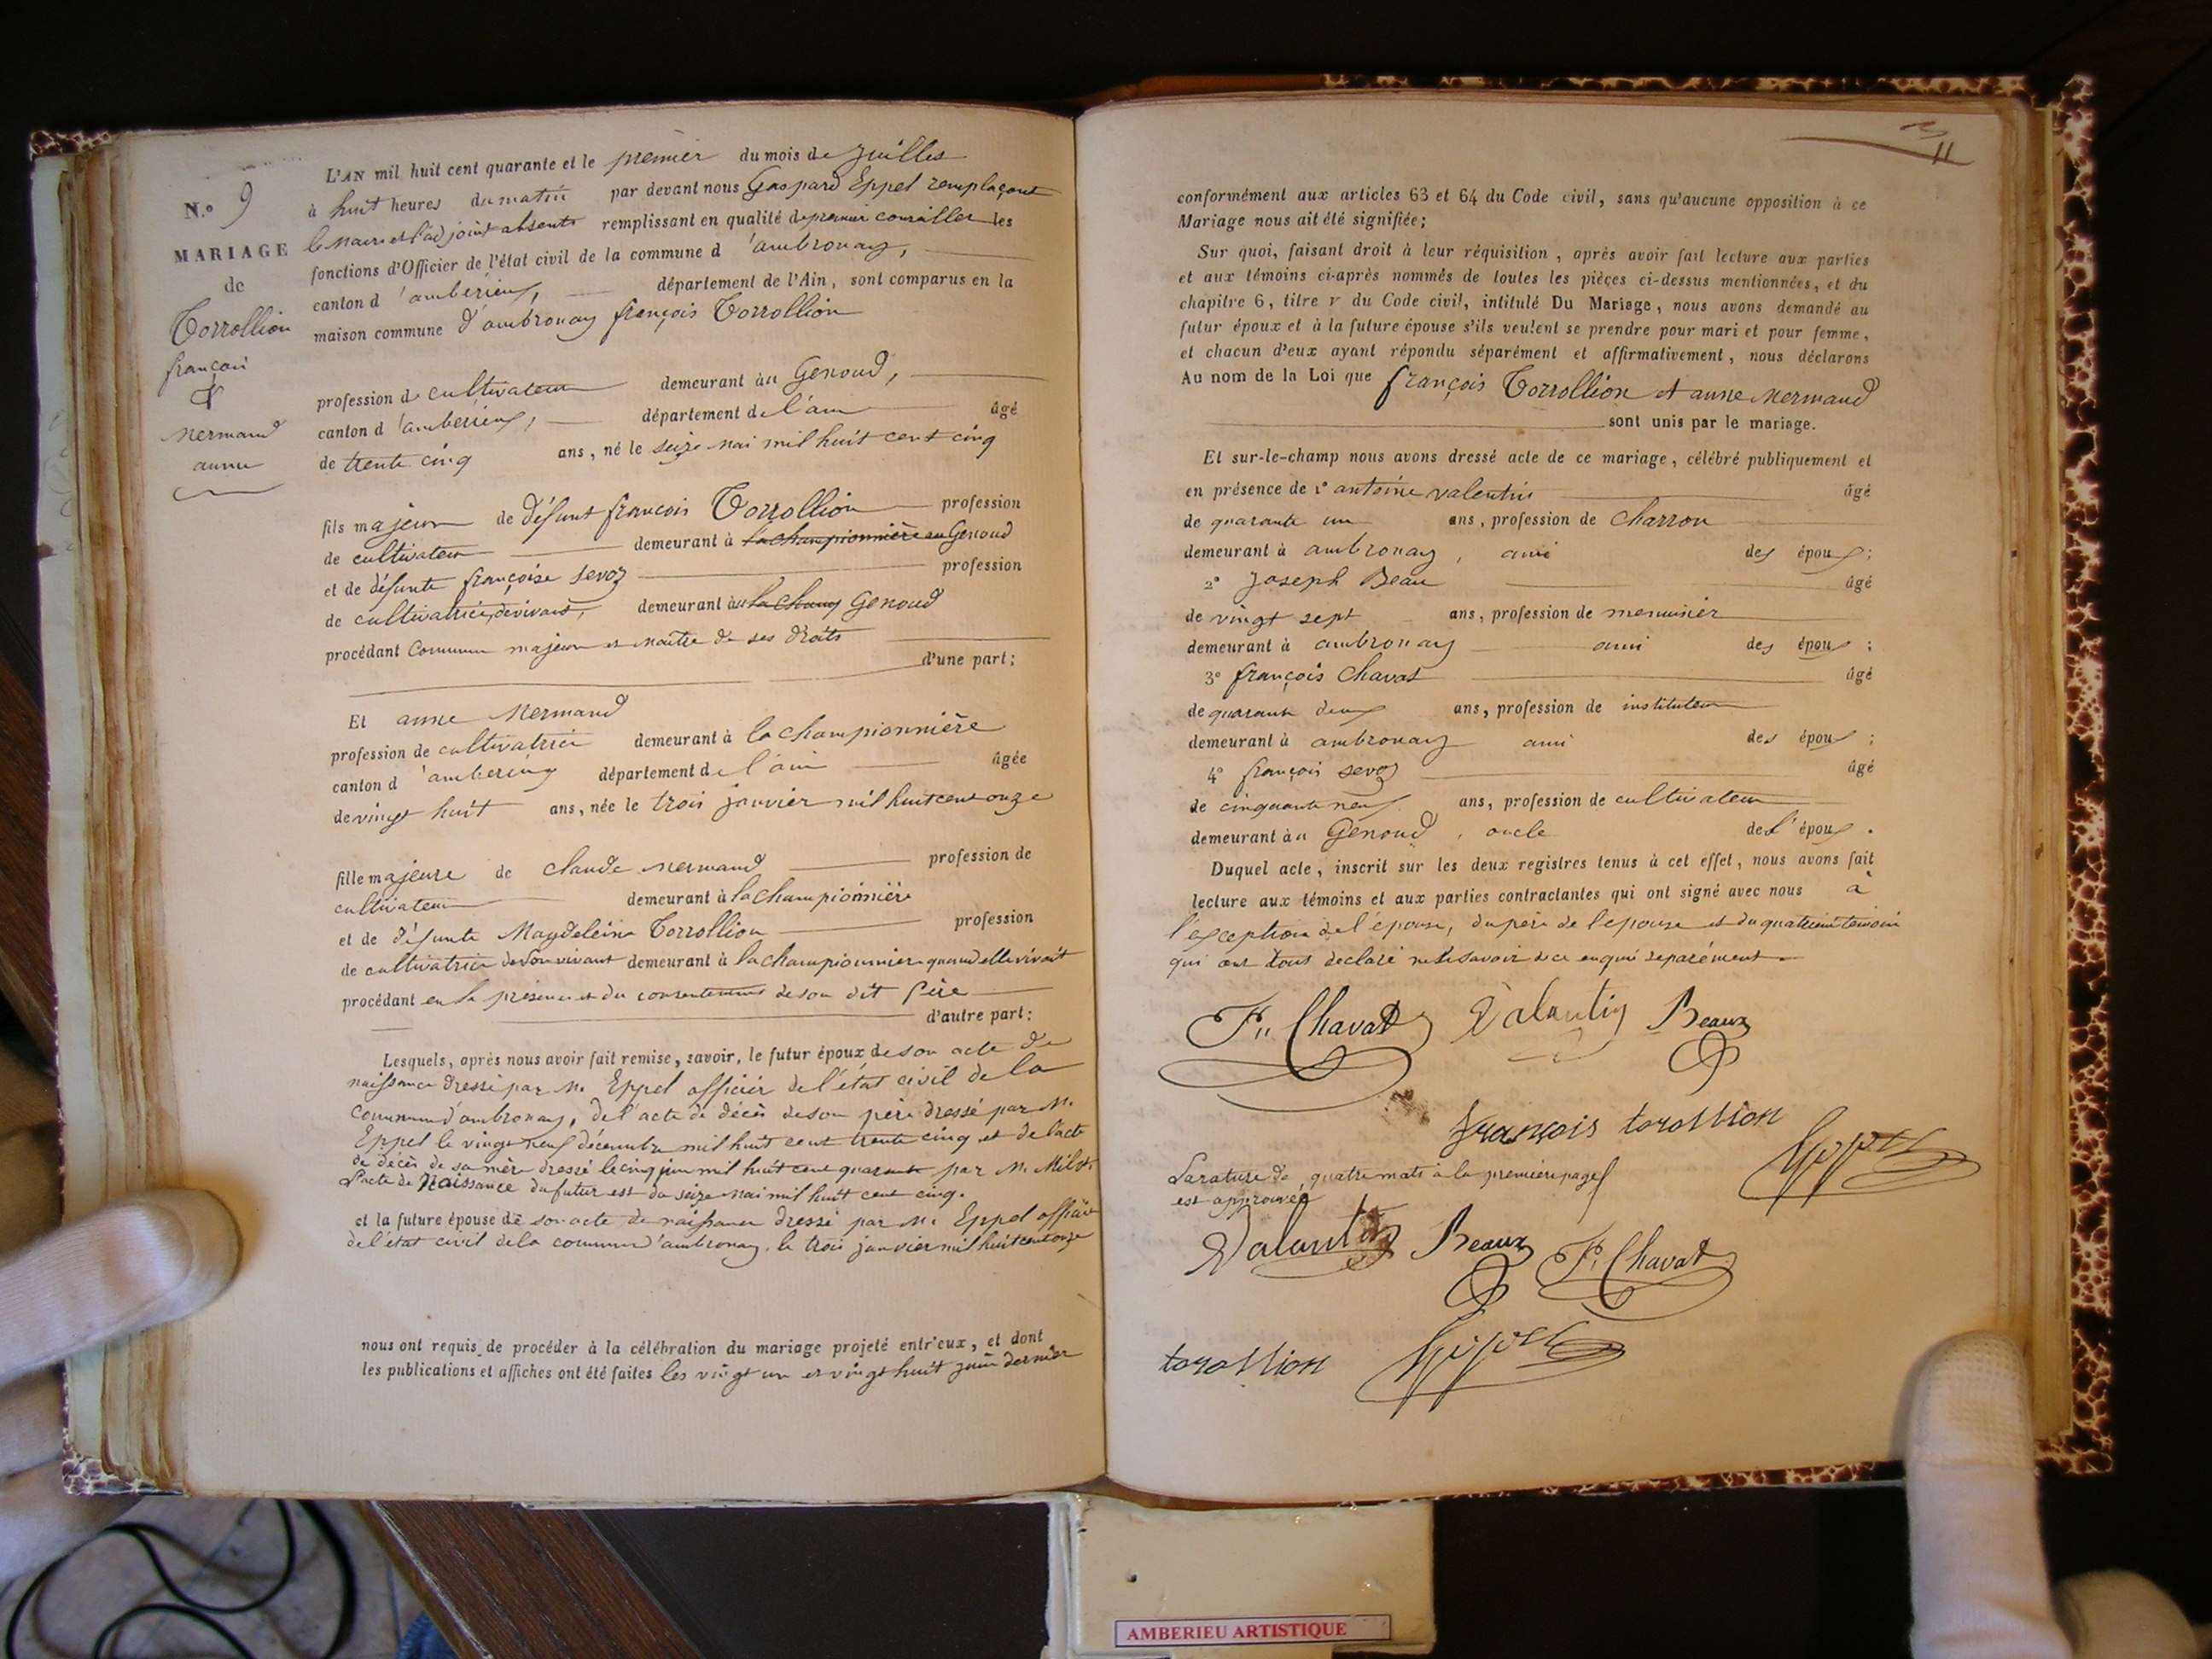 N.° 9
MARIAGE
de
Torrollion
françois
&
Mermand
anne
L'AN mil huit cent quarante et le premier du mois de juillet
à huit heures du matin par devant nous Gaspard Eppel remplaçant
le maire et l'adjoint absents remplissant en qualité de premier conseiller les
fonctions d'Officier de l'état civil de la commune d'ambronay,
canton d'ambérieux, département de l'Ain, sont comparus en la
maison commune d'ambronay françois Torrollion
profession de cultivateur demeurant au Genoud,
canton d'ambérieux, département de l'ain âgé
de trente cinq ans, né le seize mai mil huit cent cinq
fils majeur de défunt françois Torrollion profession
de cultivateur demeurant à la championnière au Genoud
et de défunte françoise Sevoz profession
de cultivatrice, de vivant, demeurant au la champ Genoud
procédant comme majeur et maître de ses droits
d'une part;
Et anne Mermand
profession de cultivatrice demeurant à la championnière
canton d'amberieux département de l'ain âgée
de vingt huit ans, née le trois janvier mil huit cent onze
fille majeure de claude Mermand profession de
cultivateur demeurant à la championnière
et de défunte Magdeleine Torrollion profession
de cultivatrice de son vivant demeurant à la championnière quand elle vivait
procédant en la présence et du consentement de son dit père
d'autre part:
Lesquels, après nous avoir fait remise, savoir, le futur époux de son acte de
naissance dressé par M. Eppel officier de l'état civil de la
commune d'ambronay, de l'acte de décès de son père dressé par M.
Eppel le vingt neuf décembre mil huit cent trente cinq et de l'acte
de décès de sa mère dressé le cinq juin mil huit cent quarante par M. Milet
L'acte de Naissance du futur est du seize mai mil huit cent cinq.
et la future épouse de son acte de naissance dressé par M. Eppel officier
de l'état civil de la commune d'ambronay le trois janvier mil huit cent onze
nous ont requis de procéder à la célébration du mariage projeté entr'eux, et dont
les publications et affiches ont été faites les vingt un et vingt huit juin dernier
11
conformément aux articles 63 et 64 du Code civil, sans qu'aucune opposition à ce
Mariage nous ait été signifiée;
Sur quoi, faisant droit à leur réquisition, après avoir fait lecture aux parties
et aux témoins ci-après nommés de toutes les pièces ci-dessus mentionnées, et du
chapitre 6, titre v du Code civil, intitulé Du Mariage, nous avons demandé au
futur époux et à la future épouse s'ils veulent se prendre pour mari et pour femme,
et chacun d'eux ayant répondu séparément et affirmativement, nous déclarons
Au nom de la Loi que françois Torrollion et anne Mermand
sont unis par le mariage.
Et sur-le-champ nous avons dressé acte de ce mariage, célébré publiquement et
en présence de 1° antoine valentin âgé
de quarante un ans, profession de charron
demeurant à ambronay, ami des époux;
2° joseph Beau âgé
de vingt sept ans, profession de menuisier
demeurant à ambronay ami des époux;
3° françois Chavat âgé
de quarante deux ans, profession de instituteur
demeurant à ambronay ami des époux;
4° françois Sevoz âgé
de cinquante neuf ans, profession de cultivateur
demeurant au Genoud, oncle de l'époux.
Duquel acte, inscrit sur les deux registres tenus à cet effet, nous avons fait
lecture aux témoins et aux parties contractantes qui ont signé avec nous à
l'exception de l'épouse, du père de l'épouse et du quatrième témoin
qui ont tous déclaré ne le savoir de ce enquis séparément
F. Chavat Valantin Beaux
françois torollion
La rature de quatre mots à la première page
est approuvée
Valantin Beaux F. Chavat
torollion
AMBERIEU ARTISTIQUE